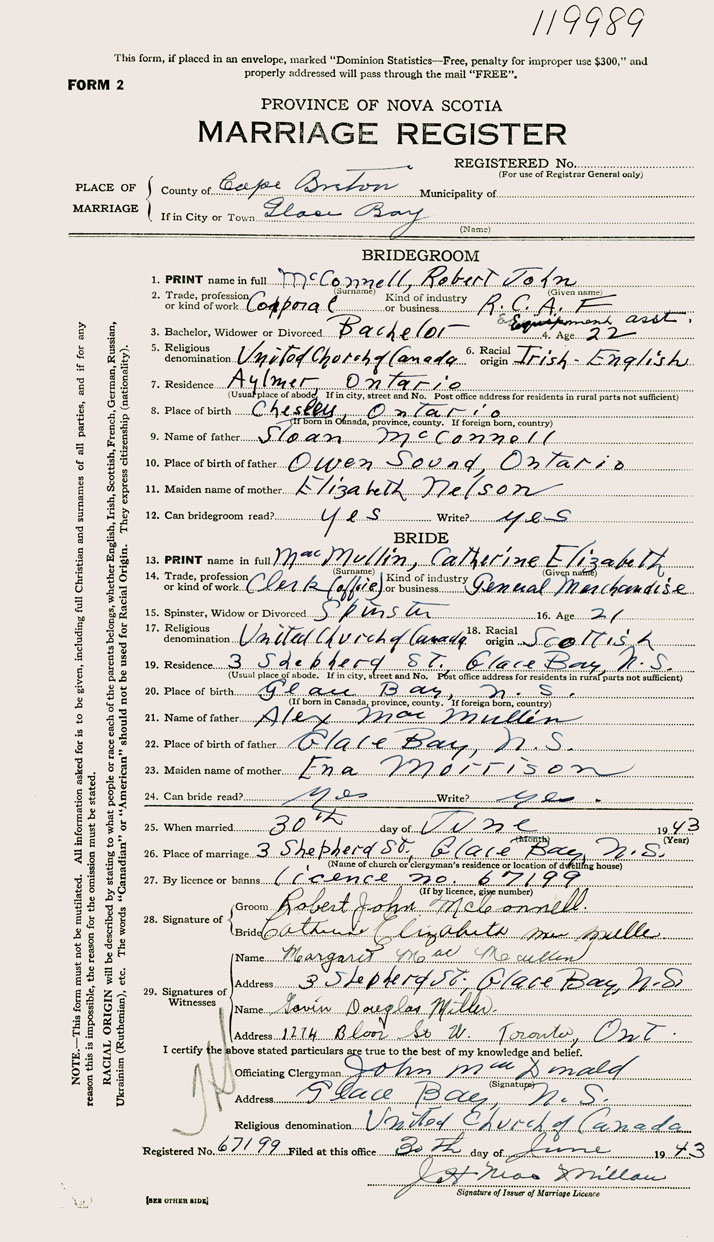 119989
This form, if placed in an envelope, marked "Dominion Statistics—Free, penalty for improper use $300," and
properly addressed will pass through the mail "FREE".
FORM 2
PROVINCE OF NOVA SCOTIA
MARRIAGE REGISTER
REGISTERED No.
(For use of Registrar General only)
PLACE OF MARRIAGE
County of Cape Breton Municipality of
If in City or Town Glace Bay
(Name)
BRIDEGROOM
1. PRINT name in full McConnell, Robert John
(Surname) (Given name)
2. Trade, profession or kind of work Corporal Kind of industry or business R.C.A.F
Equipment asst.
3. Bachelor, Widower or Divorced Bachelor 4. Age 22
5. Religious denomination United Church of Canada 6. Racial origin Irish - English
7. Residence Aylmer, Ontario
(Usual place of abode. If in city, street and No. Post office address for residents in rural parts not sufficient)
8. Place of birth Chesley, Ontario
(If born in Canada, province, county. If foreign born, country)
9. Name of father Sloan McConnell
10. Place of birth of father Owen Sound, Ontario
11. Maiden name of mother Elizabeth Nelson
12. Can bridegroom read? yes Write? yes
BRIDE
13. PRINT name in full MacMullin, Catherine Elizabeth
(Surname) (Given name)
14. Trade, profession or kind of work Clerk (office) Kind of industry or business General Merchandise
15. Spinster, Widow or Divorced Spinster 16. Age 21
17. Religious denomination United Church of Canada 18. Racial origin Scottish
19. Residence 3 Shepherd St., Glace Bay, N.S.
(Usual place of abode. If in city, street and No. Post office address for residents in rural parts not sufficient)
20. Place of birth Glace Bay, N.S.
(If born in Canada, province, county. If foreign born, country)
21. Name of father Alex MacMullin
22. Place of birth of father Glace Bay, N.S.
23. Maiden name of mother Ena Morrison
24. Can bride read? yes Write? yes.
25. When married 30th day of June 1943
(Month) (Year)
26. Place of marriage 3 Shepherd St., Glace Bay, N.S.
(Name of church or clergyman's residence or location of dwelling house)
27. By licence or banns licence no. 67199
(If by licence, give number)
28. Signature of
Groom Robert John McConnell.
Bride Catherine Elizabeth Mac Mullin
29. Signatures of Witnesses
Name Margaret Mac Mullin
Address 3 Shepherd St., Glace Bay, N.S.
Name Gavin Douglas Miller.
Address 1274 Bloor St W. Toronto, Ont.
I certify the above stated particulars are true to the best of my knowledge and belief.
Officiating Clergyman John MacDonald
(Signature)
Address Glace Bay, N.S.
Religious denomination United Church of Canada
Registered No. 67199 Filed at this office 30th day of June 1943
Signature of Issuer of Marriage Licence
[SEE OTHER SIDE]
NOTE.—This form must not be mutilated. All information asked for is to be given, including full Christian and surnames of all parties, and if for any
reason this is impossible, the reason for the omission must be stated.
RACIAL ORIGIN will be described by stating to what people or race each of the parents belongs, whether English, Irish, Scottish, French, German, Russian,
Ukrainian (Ruthenian), etc. The words "Canadian" or "American" should not be used for Racial Origin. They express citizenship (nationality).